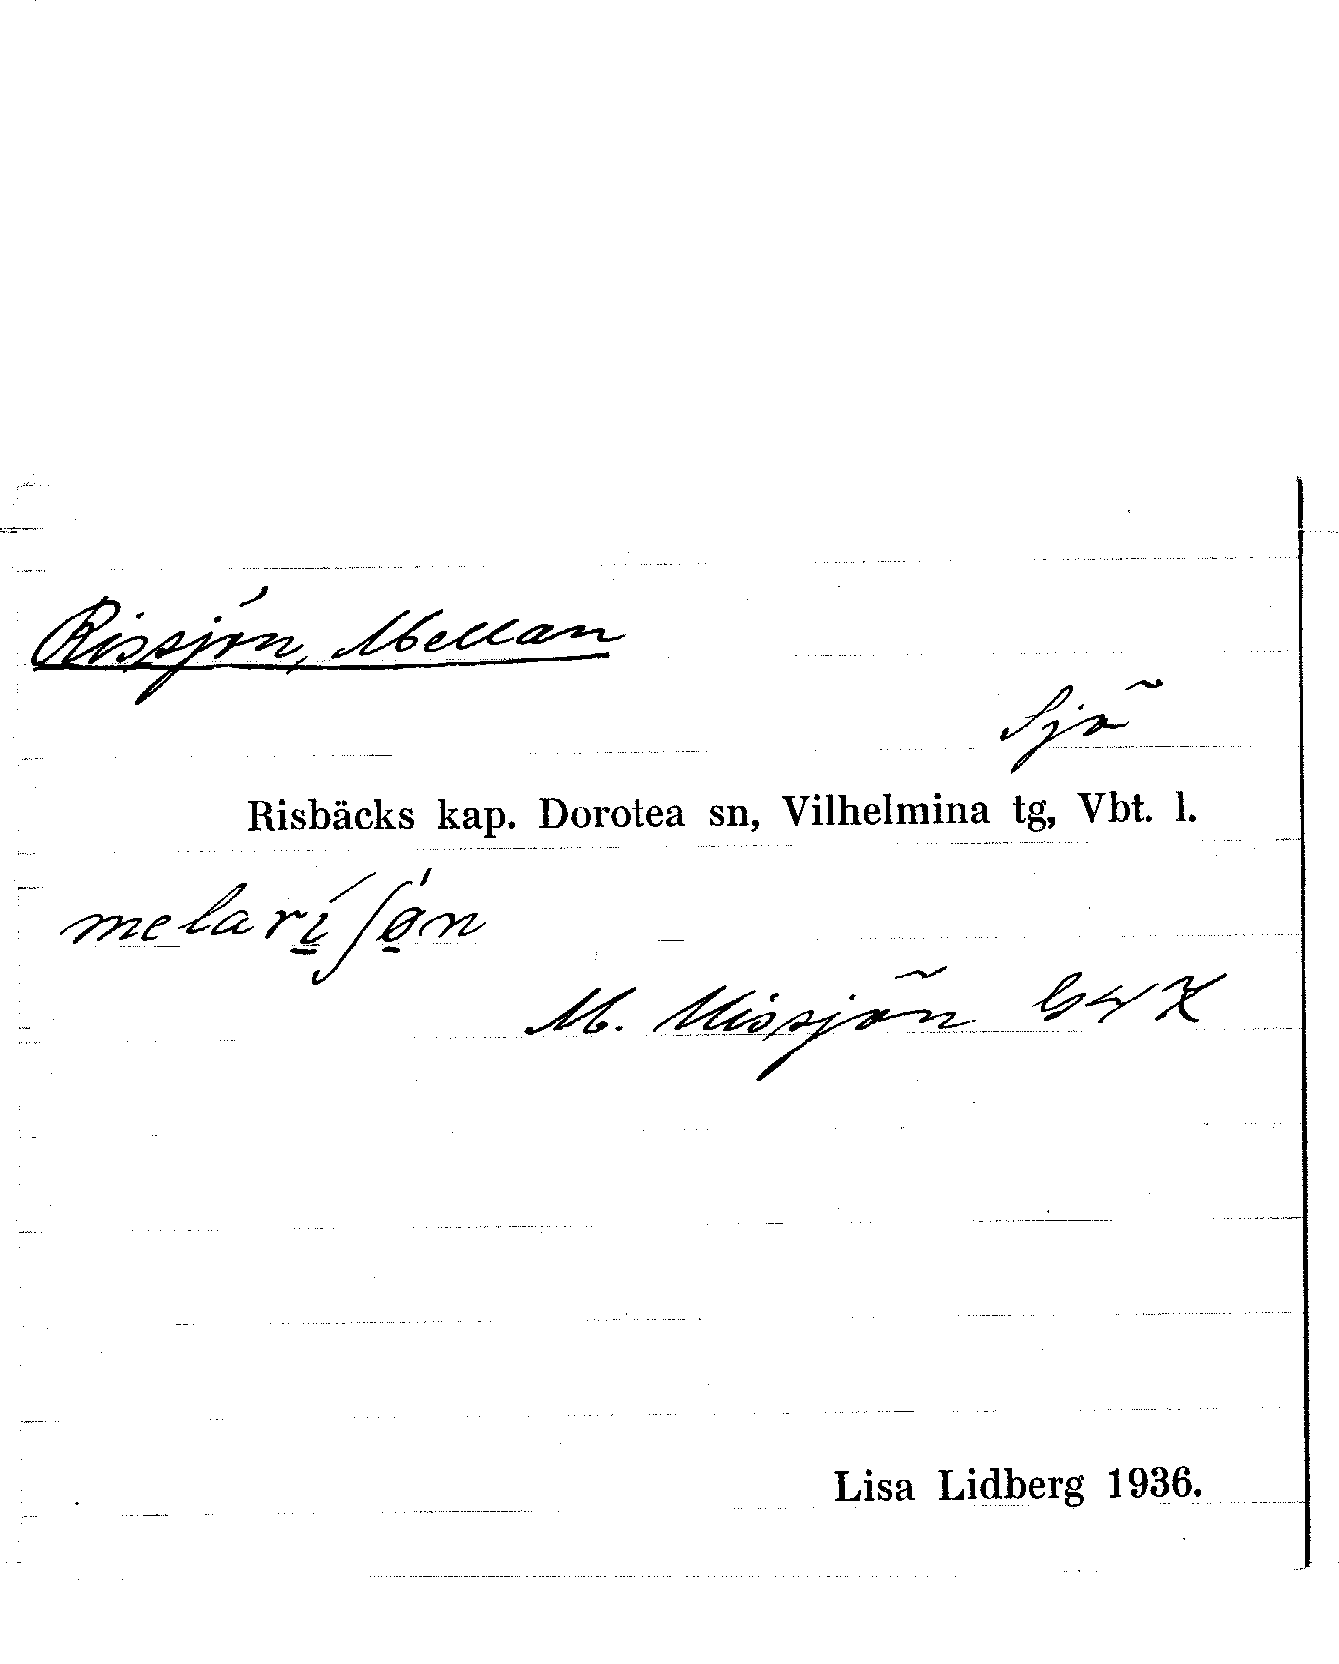 Rissjön, Mellan
Sjö
Risbäcks kap. Dorotea sn, Vilhelmina tg, Vbt. l.
melaríʃø̱n
M. Missjön GLK
Lisa Lidberg 1936.